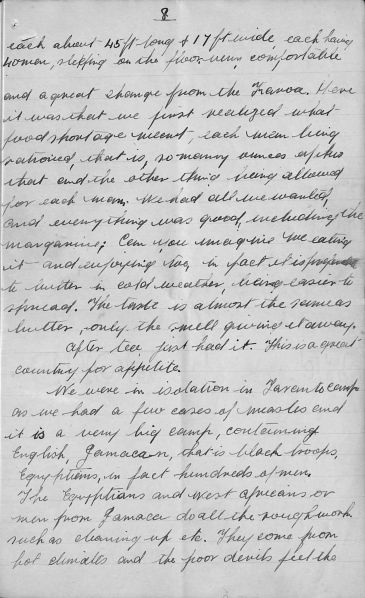 8
each about 45ft long & 17ft wide, each having
40 men, sleeping on the floor very comfortable
and a great change from the Kanowa. Here
it was that we first realized what
food shortage meant, each man being
rationed, that is, so many ounces of this
that and the other thing being allowed
for each man. We had all we wanted,
and everything was good, including the
margarine; Can you imagine me eating
it and enjoying too, in fact it is
to butter in cold weather, being easier to
spread. The taste is almost the same as
butter, only the smell giving it away.
After tea, just had it. This is a great
country for appetite.
We were in isolation in Taranto camp
as we had a few cases of measles and
it is a very big camp, containing
English, Jamacan, that is black troops,
Egyptians, in fact hundreds of men.
The Egyptians and west africans or
men from Jamaca do all the rough work
such as cleaning up etc. They come from
hot climates and the poor devils feel the